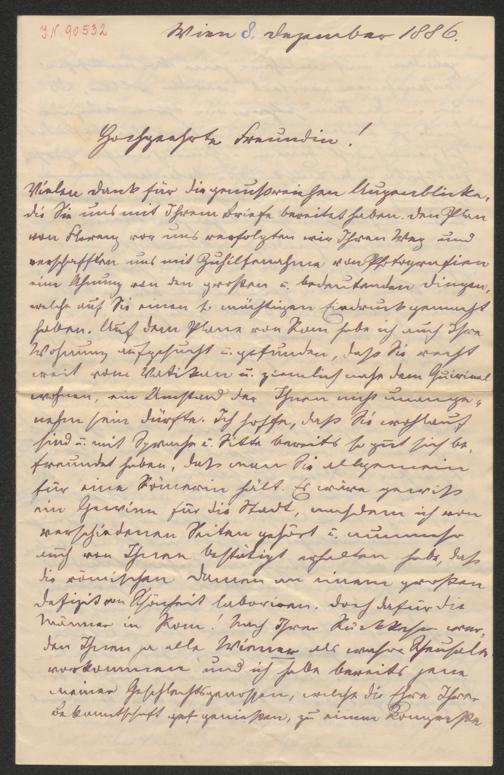 J.N. 90532
Wien 8. Dezember 1886.
Hochgeehrte Freundin!
Vielen Dank für die genußreichen Augenblicke,
die Sie uns mit Ihrem Briefe bereitet haben. Den Plan
von Florenz vor uns verfolgten wir Ihren Weg und
verschafften uns mit Zuhilfenahme von Photografien
eine Ahnung von den großen u. bedeutenden Dingen,
welche auf Sie einen so mächtigen Eindruck gemacht
haben. Auf dem Plane von Rom habe ich auch Ihre
Wohnung aufgesucht u. gefunden, daß Sie recht
weit vom Vatikan u. ziemlich nahe dem Quirinal
wohnen, ein Umstand der Ihnen nicht unange-
nehm sein dürfte. Ich hoffe, daß Sie wohlauf
sind u. mit Sprache u. Sitte bereits so gut sich be-
freundet haben, daß man Sie allgemein
für eine Römerin hält. Es wäre gewiß
ein Gewinn für die Stadt, nachdem ich von
verschiedenen Seiten gehört u. nunmehr
auch von Ihnen bestätigt erhalten habe, daß
die römischen Damen an einem großen
Defizit von Schönheit laboriren. Doch dafür die
Männer in Rom! Nach Ihrer Rückkehr wer-
den Ihnen ja alle Wiener als wahre Scheusale
vorkommen und ich habe bereits jene
meiner Geschlechtsgenossen, welche die Ehre Ihrer
Bekanntschaft genießen, zu einem Kongresse